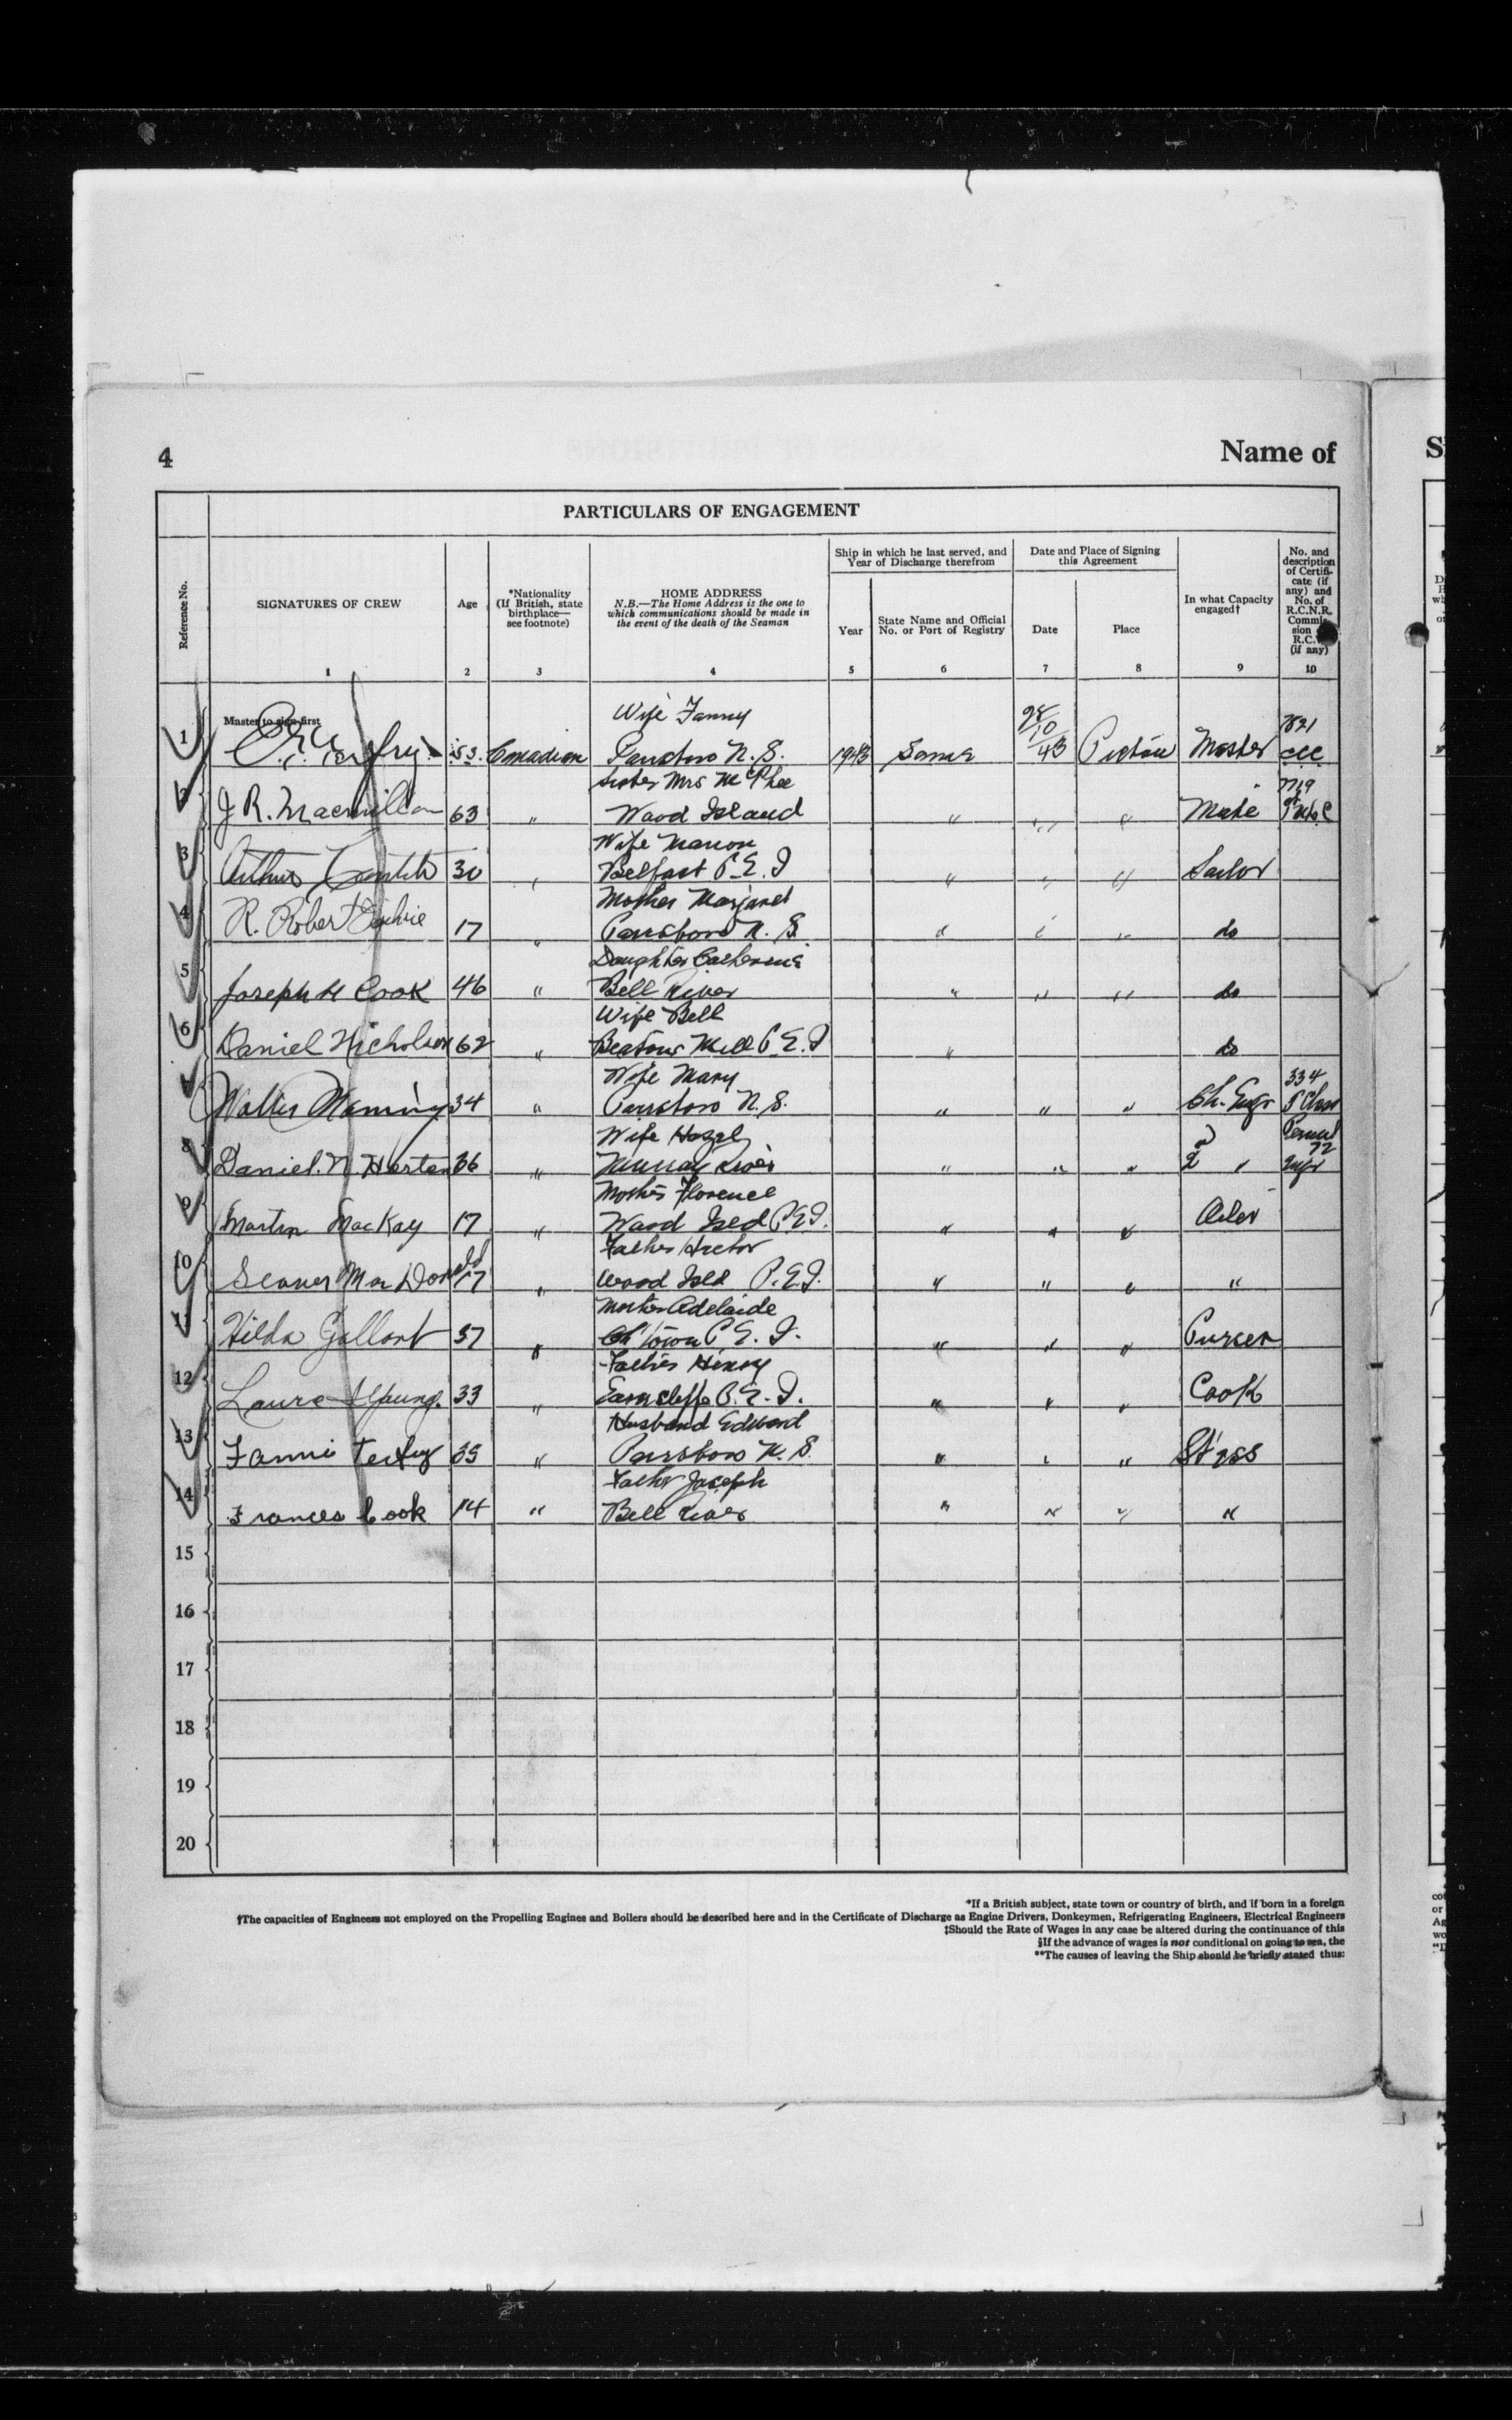 4
Name of
S
PARTICULARS OF ENGAGEMENT
Reference No.
SIGNATURES OF CREW
Age
*Nationality
(If British, state
birthplace—
see footnote)
HOME ADDRESS
N.B.—The Home Address is the one to
which communications should be made in
the event of the death of the Seaman
Ship in which he last served, and
Year of Discharge therefrom
Year
State Name and Official
No. or Port of Registry
Date and Place of Signing
this Agreement
Date
Place
In what Capacity
engaged†
No. and
description
of Certifi-
cate (if
any) and
No. of
R.C.N.R.
Commis-
sion
R.C.
(if any)
1 2 3 4 5 6 7 8 9 10
Master to sign first
Wife Fanny
1 53. Canadian Parrsboro N.S. 1943 Same 28/10/43 Pictou Master 7821
Sister Mrs McPhee
2 J R. Macmillan 63 " Wood Island " " " Mate 7719
Wife Marion
3 Arthur 30 " Belfast P.E.I " " " Sailor
Mother Margaret
4 R. Robert 17 " Parrsboro N.S. " " " do
Daughter Catherine
5 Joseph H Cook 46 " Bell River " " " do
Wife Bell
6 Daniel Nicholson 62 " Beatons Mill P.E.I " do
Wife Mary
Walter Manning 34 " Parrsboro N.S. " " " Ch. Engr 334
Wife Hazel
8 Daniel. N. Harten 36 " Murray River " " " 2 " 72 Engr
Mother Florence
9 Martin MacKay 17 " Wood Isld P.E.I. " " " Oiler
Father Hector
10 MacDonald 17 " Wood Isld P.E.I. " " " "
Mother Adelaide
Hilda Gallant 37 " Ch'town P.E.I. " " " Purser
Father Henry
12 Laura Young. 33 " Earnscliffe P.E.I. " " " Cook
Husband Edward
13 Fannie 35 " Parrsboro N.S. " " " St'ess
Father Joseph
14 Frances Cook 14 " Bell River " " " "
15
16
17
18
19
20
*If a British subject, state town or country of birth, and if born in a foreign
†The capacities of Engineers not employed on the Propelling Engines and Boilers should be described here and in the Certificate of Discharge as Engine Drivers, Donkeymen, Refrigerating Engineers, Electrical Engineers
‡Should the Rate of Wages in any case be altered during the continuance of this
§If the advance of wages is not conditional on going to sea, the
**The causes of leaving the Ship should be briefly stated thus: